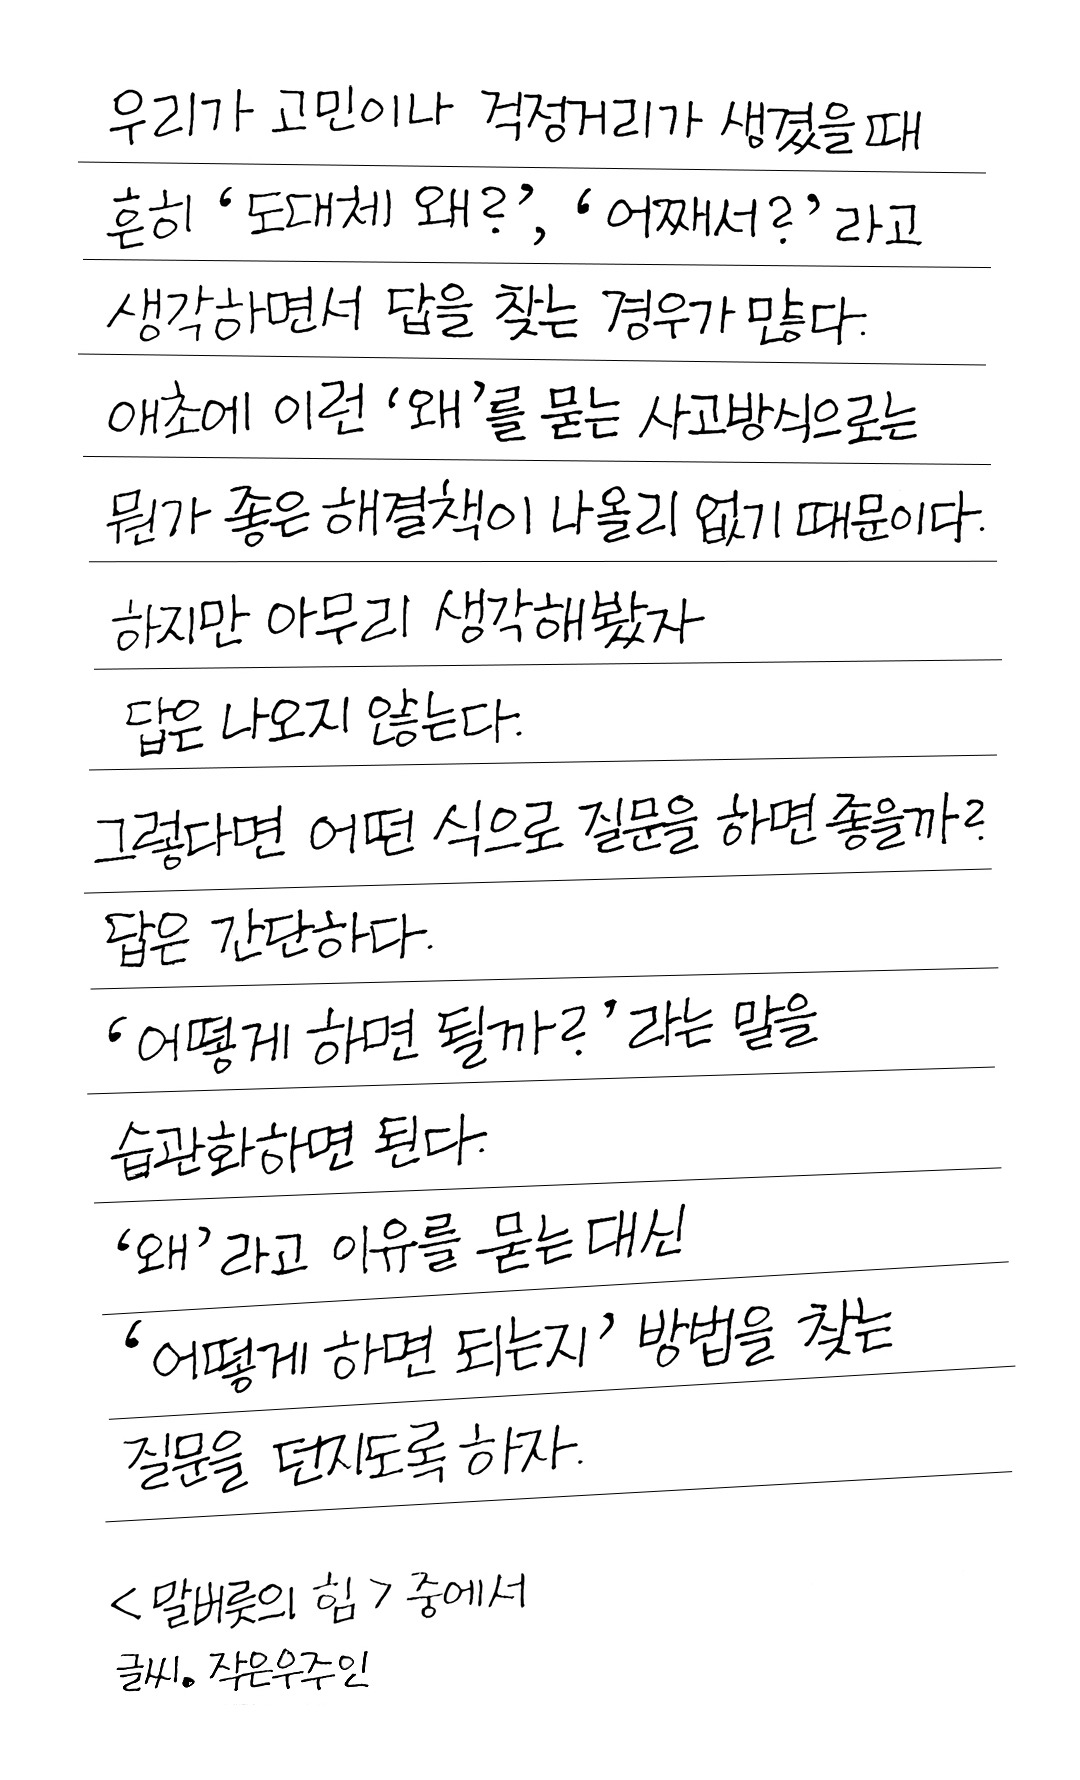 우리가 고민이나 걱정거리가 생겼을 때
흔히 ‘도대체 왜?’, ‘어째서?’ 라고
생각하면서 답을 찾는 경우가 많다.
애초에 이런 ‘왜’를 묻는 사고방식으로는
뭔가 좋은 해결책이 나올리 없기 때문이다.
하지만 아무리 생각해봤자
답은 나오지 않는다.
그렇다면 어떤 식으로 질문을 하면 좋을까?
답은 간단하다.
‘어떻게 하면 될까?’ 라는 말을
습관화하면 된다.
‘왜’ 라고 이유를 묻는 대신
‘어떻게 하면 되는지’ 방법을 찾는
질문을 던지도록 하자.
<말버릇의 힘> 중에서
글씨. 작은우주인